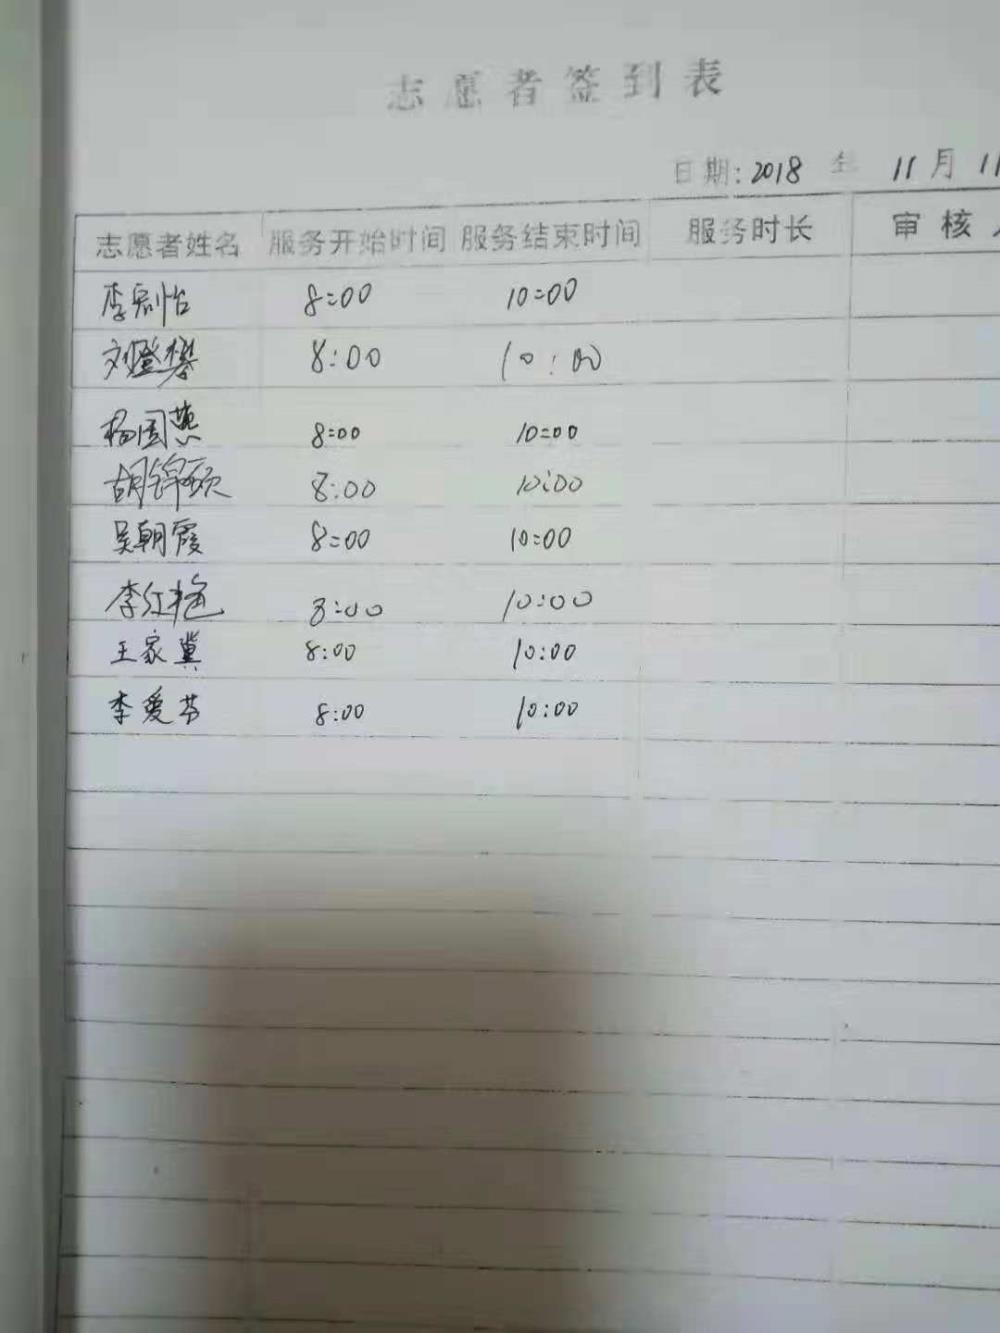 志愿者签到表
日期:2018 年 11月 11
志愿者姓名 服务开始时间 服务结束时间 服务时长 审核
8:00 10:00
8:00 10:00
杨国燕 8:00 10:00
胡锦 8:00 10:00
吴朝霞 8:00 10:00
李红艳 8:00 10:00
王家冀 8:00 10:00
李爱芬 8:00 10:00